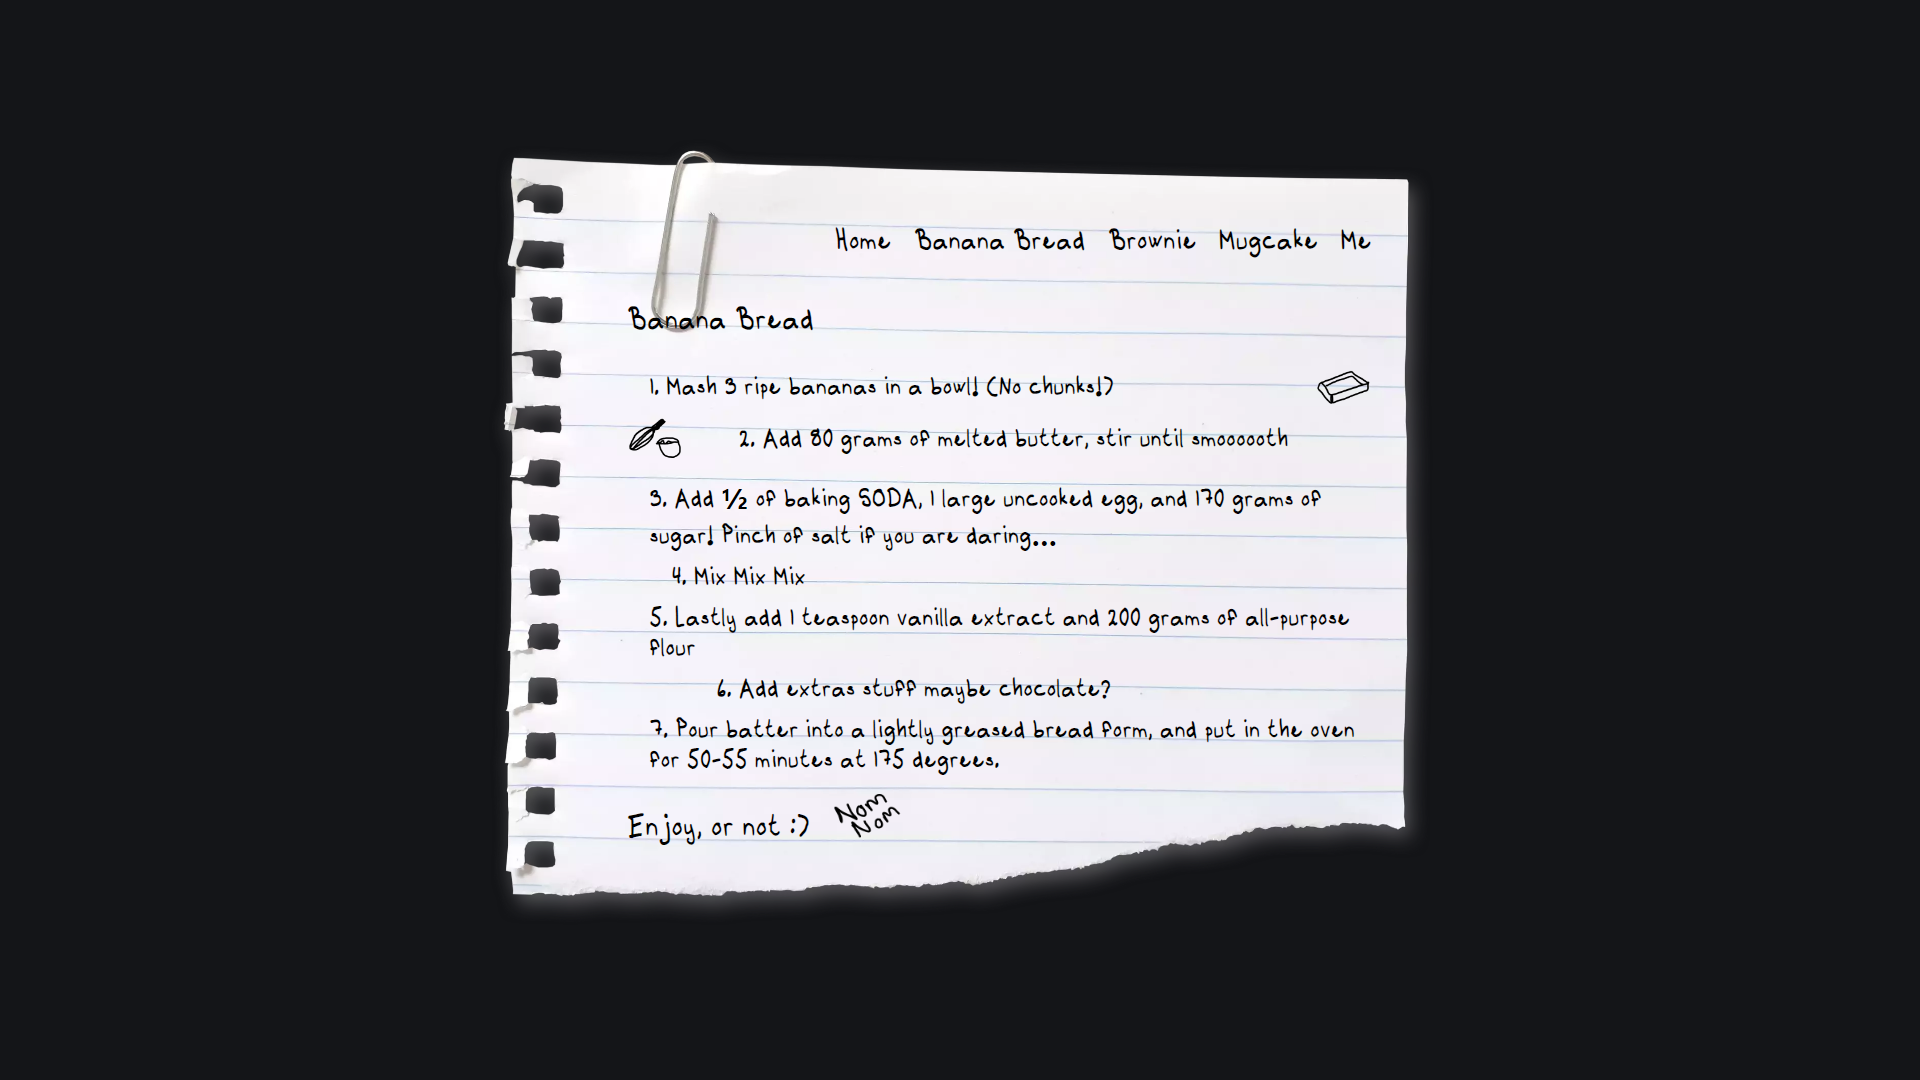 Home Banana Bread Brownie Mugcake Me
Banana Bread
1. Mash 3 ripe bananas in a bowl! (No chunks!)
2. Add 80 grams of melted butter, stir until smoooooth
3. Add ½ of baking SODA, 1 large uncooked egg, and 170 grams of
sugar! Pinch of salt if you are daring...
4. Mix Mix Mix
5. Lastly add 1 teaspoon vanilla extract and 200 grams of all-purpose
flour
6. Add extras stuff maybe chocolate?
7. Pour batter into a lightly greased bread form, and put in the oven
for 50-55 minutes at 175 degrees.
Enjoy, or not :)
Nom
Nom